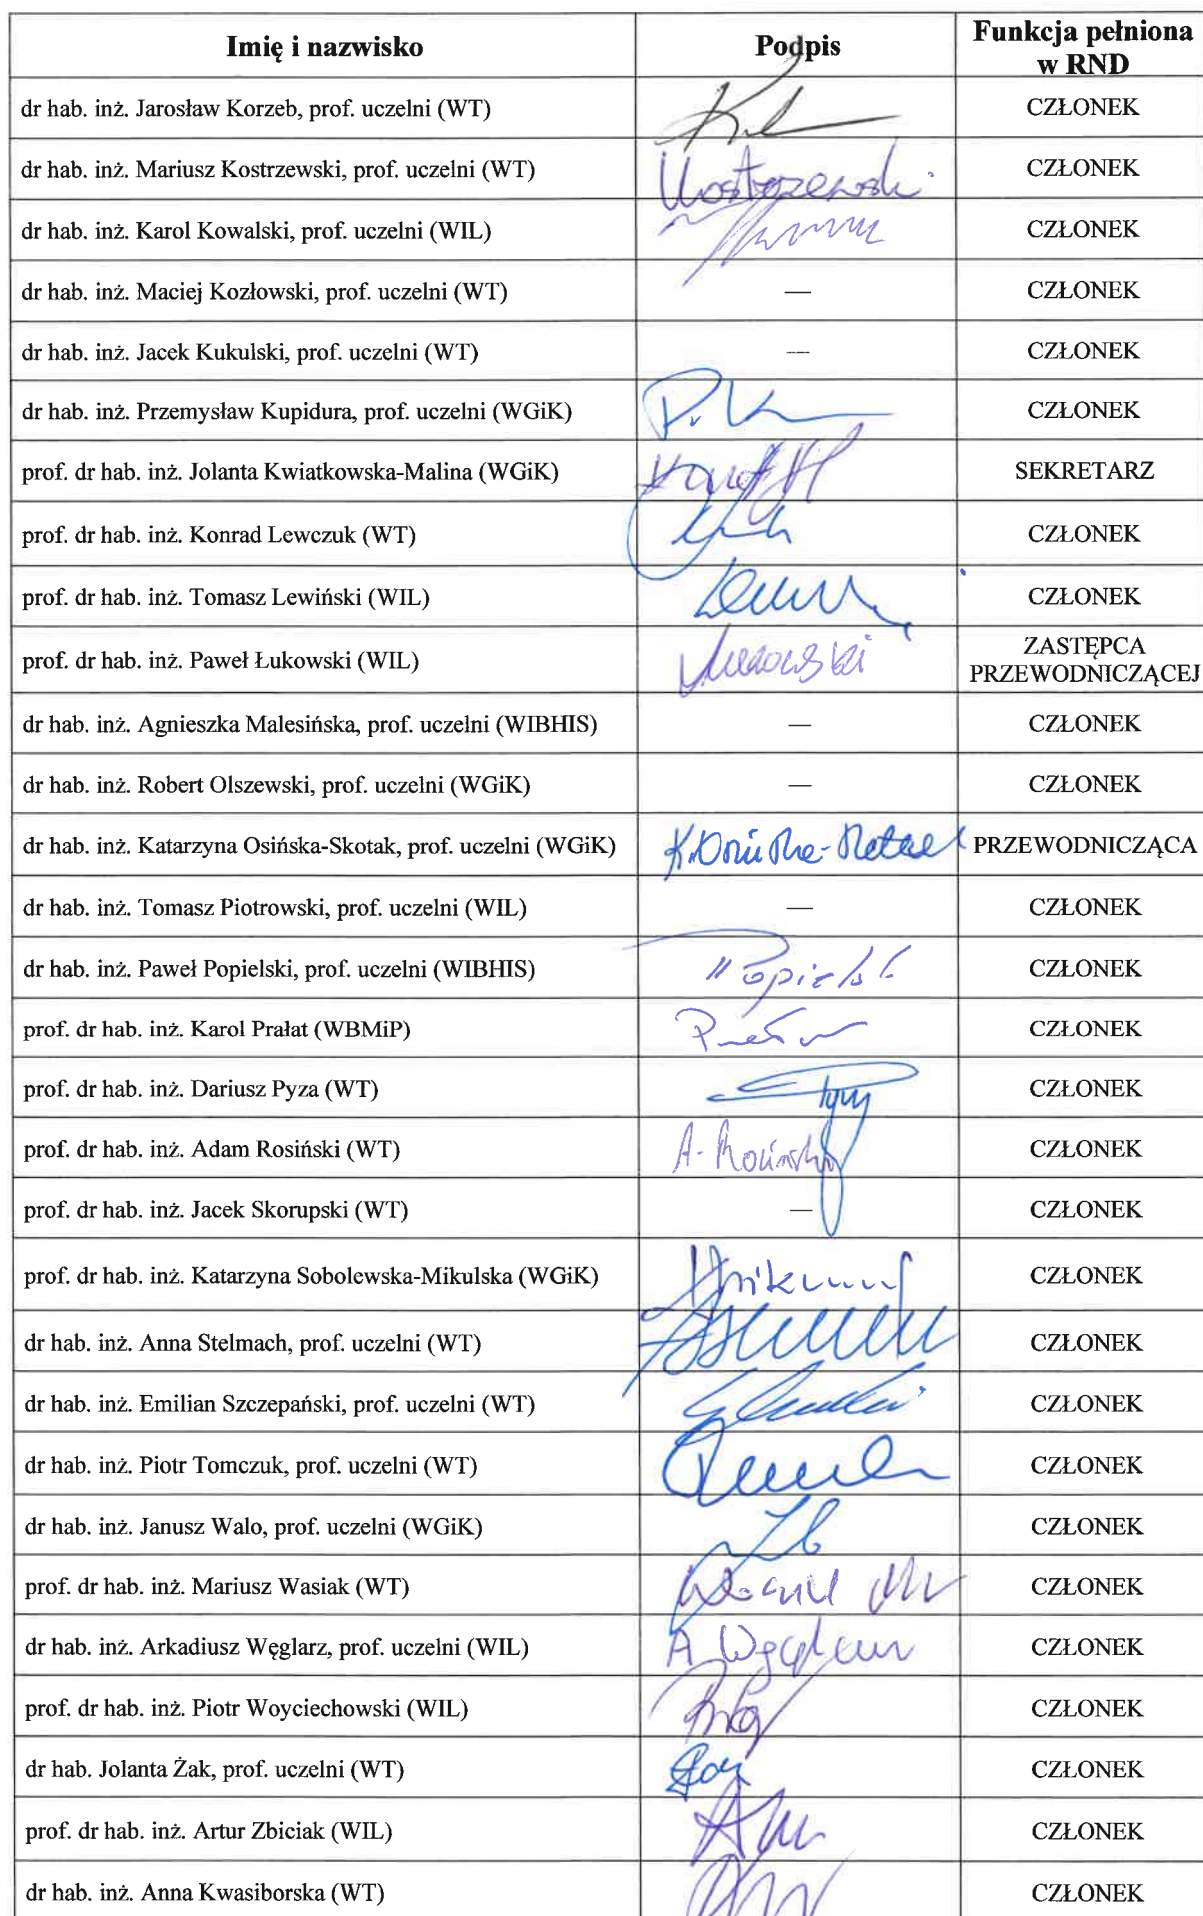 Imię i nazwisko Podpis Funkcja pełniona
w RND
dr hab. inż. Jarosław Korzeb, prof. uczelni (WT) CZŁONEK
dr hab. inż. Mariusz Kostrzewski, prof. uczelni (WT) Kostrzewski CZŁONEK
dr hab. inż. Karol Kowalski, prof. uczelni (WIL) CZŁONEK
dr hab. inż. Maciej Kozłowski, prof. uczelni (WT) — CZŁONEK
dr hab. inż. Jacek Kukulski, prof. uczelni (WT) — CZŁONEK
dr hab. inż. Przemysław Kupidura, prof. uczelni (WGiK) CZŁONEK
prof. dr hab. inż. Jolanta Kwiatkowska-Malina (WGiK) SEKRETARZ
prof. dr hab. inż. Konrad Lewczuk (WT) CZŁONEK
prof. dr hab. inż. Tomasz Lewiński (WIL) CZŁONEK
prof. dr hab. inż. Paweł Łukowski (WIL) ZASTĘPCA
PRZEWODNICZĄCEJ
dr hab. inż. Agnieszka Malesińska, prof. uczelni (WIBHIS) — CZŁONEK
dr hab. inż. Robert Olszewski, prof. uczelni (WGiK) — CZŁONEK
dr hab. inż. Katarzyna Osińska-Skotak, prof. uczelni (WGiK) PRZEWODNICZĄCA
dr hab. inż. Tomasz Piotrowski, prof. uczelni (WIL) — CZŁONEK
dr hab. inż. Paweł Popielski, prof. uczelni (WIBHIS) CZŁONEK
prof. dr hab. inż. Karol Prałat (WBMiP) CZŁONEK
prof. dr hab. inż. Dariusz Pyza (WT) CZŁONEK
prof. dr hab. inż. Adam Rosiński (WT) CZŁONEK
prof. dr hab. inż. Jacek Skorupski (WT) — CZŁONEK
prof. dr hab. inż. Katarzyna Sobolewska-Mikulska (WGiK) CZŁONEK
dr hab. inż. Anna Stelmach, prof. uczelni (WT) CZŁONEK
dr hab. inż. Emilian Szczepański, prof. uczelni (WT) CZŁONEK
dr hab. inż. Piotr Tomczuk, prof. uczelni (WT) CZŁONEK
dr hab. inż. Janusz Walo, prof. uczelni (WGiK) CZŁONEK
prof. dr hab. inż. Mariusz Wasiak (WT) CZŁONEK
dr hab. inż. Arkadiusz Węglarz, prof. uczelni (WIL) CZŁONEK
prof. dr hab. inż. Piotr Woyciechowski (WIL) CZŁONEK
dr hab. Jolanta Żak, prof. uczelni (WT) CZŁONEK
prof. dr hab. inż. Artur Zbiciak (WIL) CZŁONEK
dr hab. inż. Anna Kwasiborska (WT) CZŁONEK